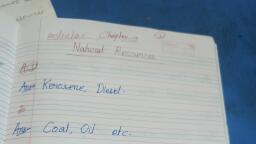 Chapter →
Natural Resources
Ans Kerosene, Diesel.
Ans Coal, Oil etc.